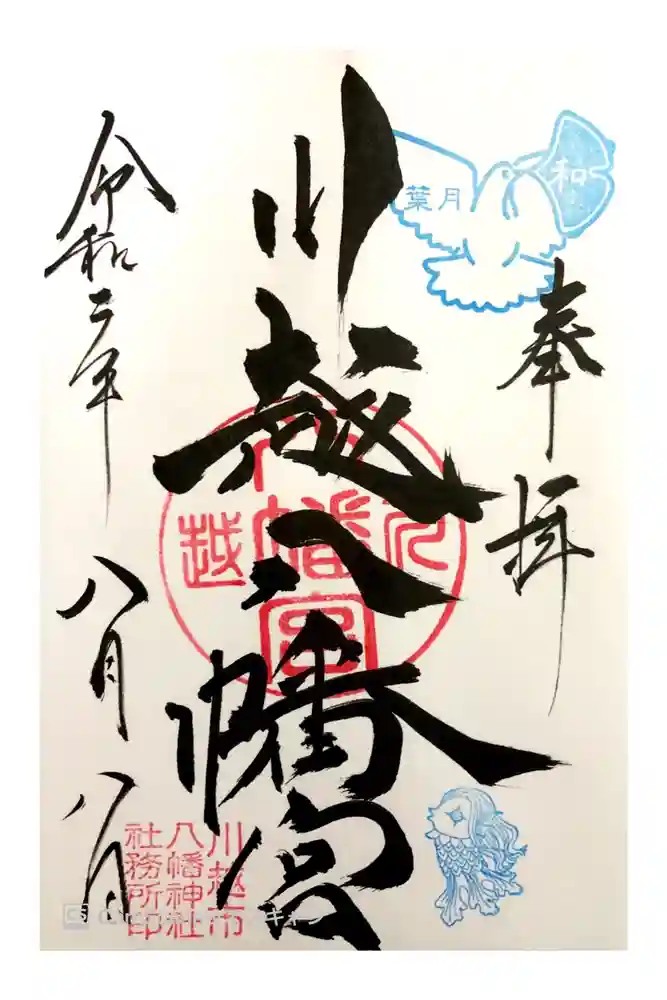 和
葉月
奉拝
川越八幡宮
川
八幡宮
越
令和二年
八月八日
川越市
八幡神社
社務所印
CS